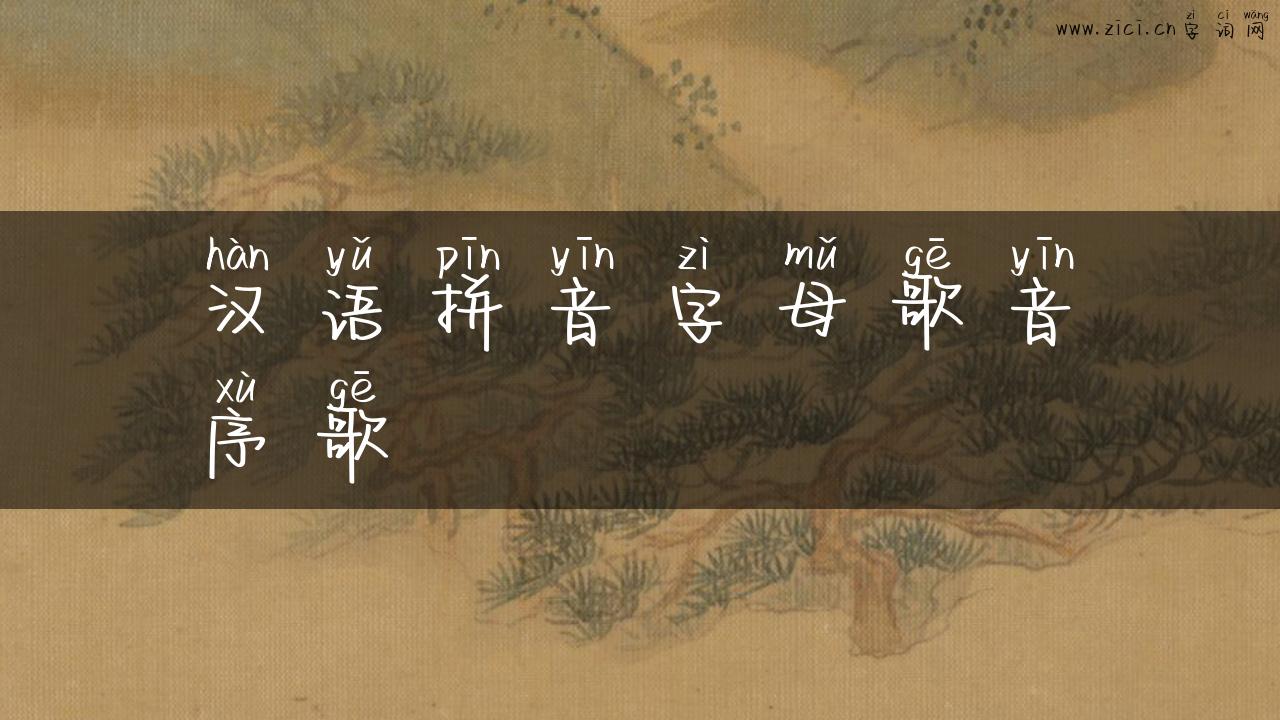 zì cí wǎng
www.zici.cn 字词网
hàn yǔ pīn yīn zì mǔ gē yīn
汉语拼音字母歌音
xù gē
序歌